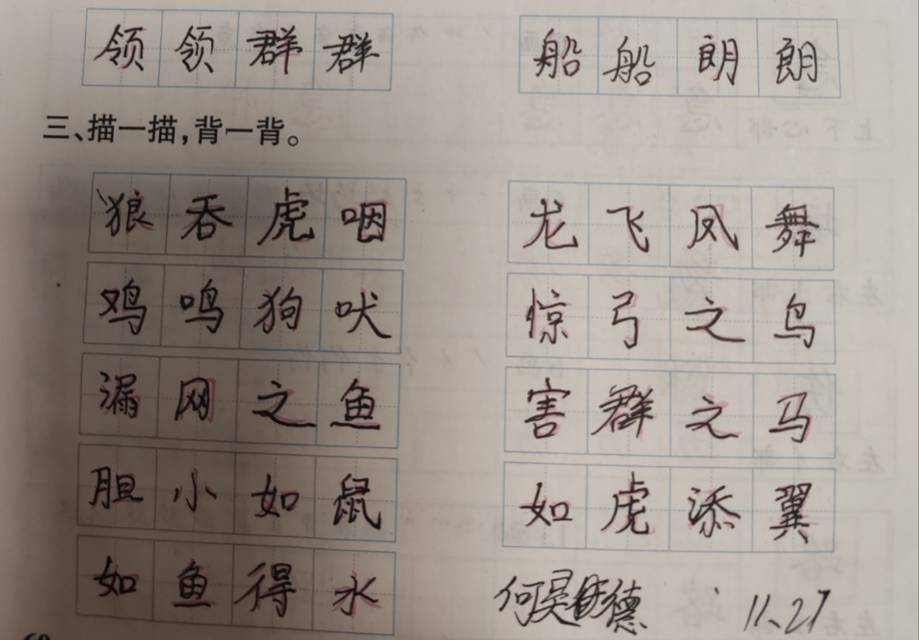 领领群群 船船朗朗
三、描一描,背一背。
狼吞虎咽 龙飞凤舞
鸡鸣狗吠 惊弓之鸟
漏网之鱼 害群之马
胆小如鼠 如虎添翼
如鱼得水 何德 11.27